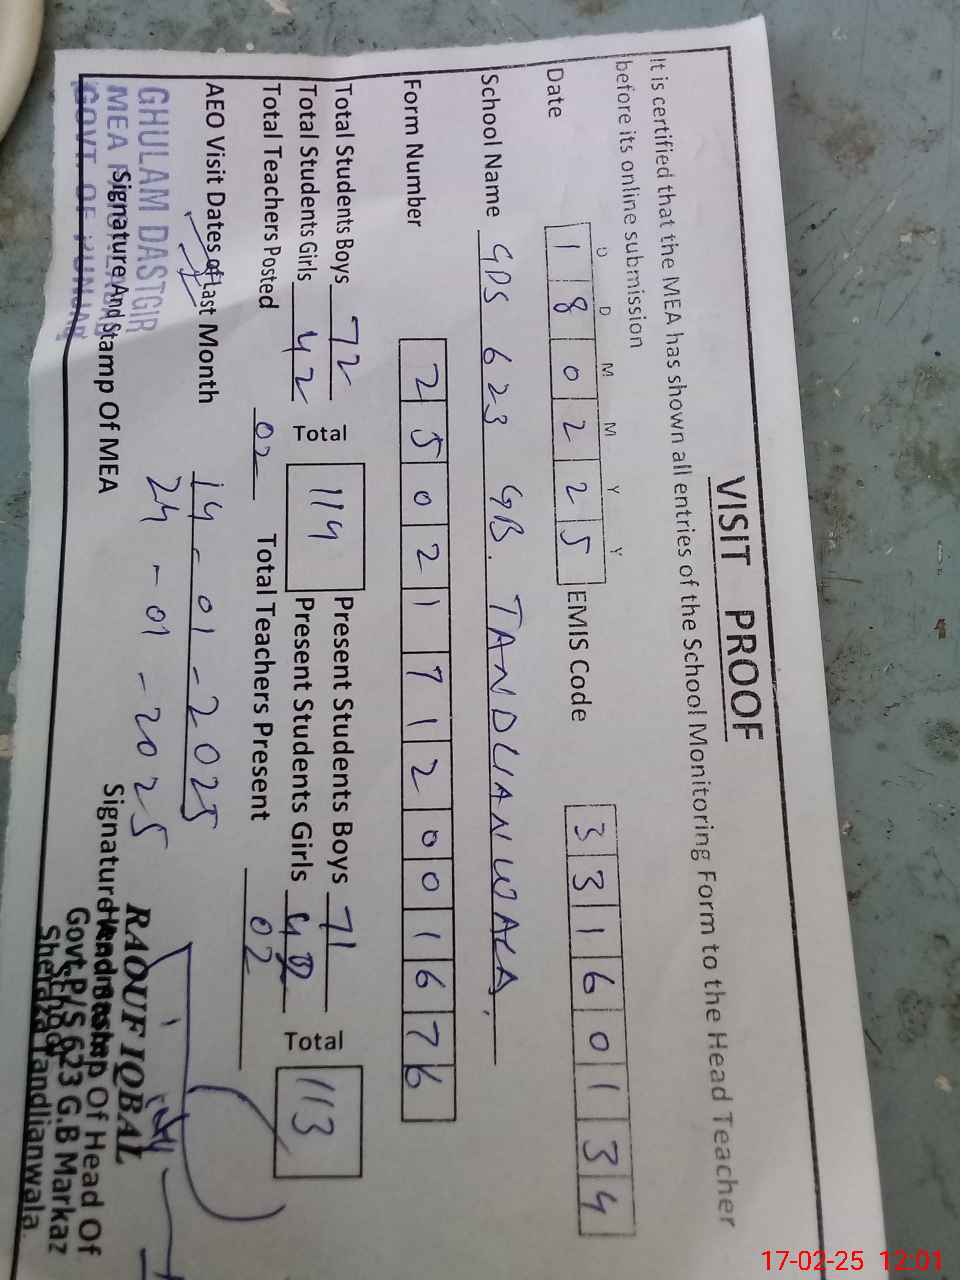 VISIT PROOF
It is certified that the MEA has shown all entries of the School Monitoring Form to the Head Teacher
before its online submission
D D M M Y Y
Date 1 8 0 2 2 5 EMIS Code 3 3 1 6 0 1 3 4
School Name GPS 623 GB. TANDLIANWALA.
Form Number 2 5 0 2 1 7 1 2 0 0 1 6 7 6
Total Students Boys 72 Total 114 Present Students Boys 71 Total 113
Total Students Girls 42 Present Students Girls 42
Total Teachers Posted 02 Total Teachers Present 02
AEO Visit Dates of Last Month 14-01-2025
24-01-2025
GHULAM DASTGIR
MEA
GOVT. OF PUNJAB
Signature And Stamp Of MEA
RAOUF IQBAL
Signature And Stamp Of Head Of
School
Govt.P/S 623 G.B Markaz
Tandlianwala.
17-02-25 12:01